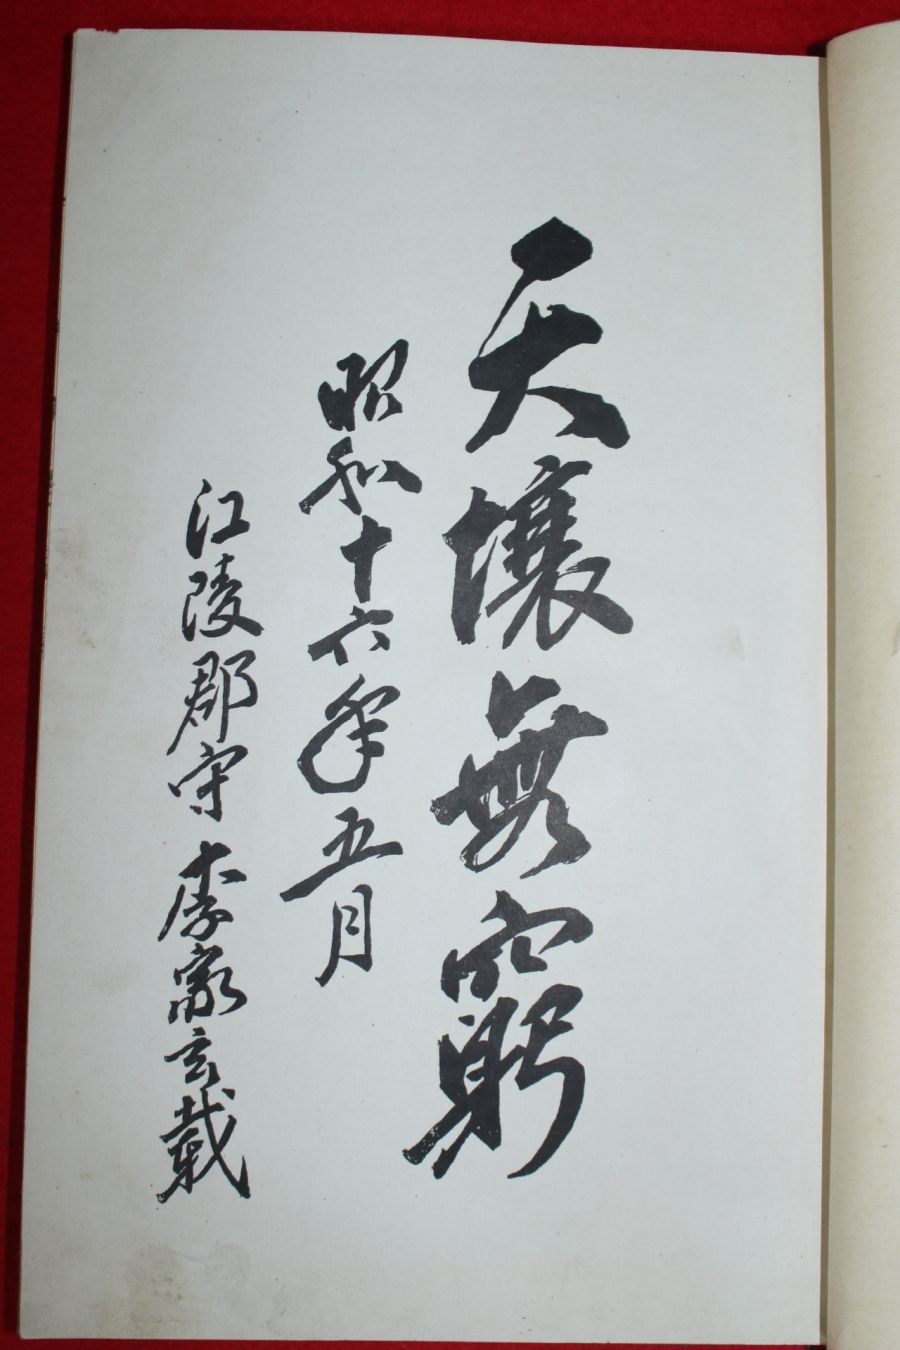 天壤無窮
昭和十六年五月
江陵郡守 李家玄載